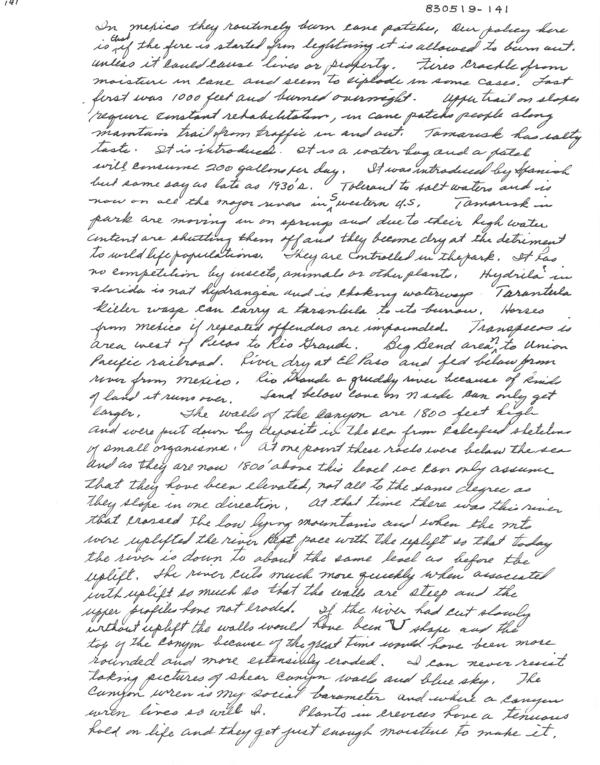 141
830519-141
In mexico they routinely burn cane patches, Our policy here
is that if the fire is started from lightning it is allowed to burn out.
unless it could cause lives or property. Fires crackle from
moisture in cane and seem to explode in some cases. Last
first was 1000 feet and burned overnight. Upper trail on slopes
require constant rehabilitation, in cane patches people along
maintain trail from traffic in and out. Tamarisk has salty
taste. It is introduced. It is a water hog and a patch
will consume 200 gallons per day. It was introduced by Spanish
but some say as late as 1930's. Tolerant to salt waters and is
now on all the major rivers in S western U.S. Tamarisk in
park are moving in on springs and due to their high water
content are shutting them off and they become dry at the detriment
to wild life populations. They are controlled in the park. It has
no competition by insects, animals or other plants. Hydrila in
Florida is not hydrangea and is choking waterways Tarantula
Killer wasp can carry a tarantula to its burrow. Horses
from Mexico if repeated offenders are impounded. Transpecos is
area west of Pecos to Rio Grande. Big Bend area N. to Union
Pacific railroad. River dry at El Paso and fed below from
river from Mexico. Rio Grande a muddy river because of kinds
of land it runs over. Sand below cane on N side can only get
larger. The walls of the canyon are 1800 feet high
and were put down by deposits in the sea from calcified skeleton
of small organisms. At one point these rocks were below the sea
and as they are now 1800' above this level we can only assume
that they have been elevated, not all to the same degree as
they slope in one direction. At that time there was this river
that crossed the low lying mountains and when the mts
were uplifted the river kept pace with the uplift so that today
the river is down to about the same level as before the
uplift. The river cuts much more quickly when associated
with uplift so much so that the walls are steep and the
upper profiles have not eroded. If the river had cut slowly
without uplift the walls would have been U shape and the
top of the canyon because of the great time would have been more
rounded and more extensively eroded. I can never resist
taking pictures of shear canyon walls and blue sky. The
Canyon wren is my social barometer and where a canyon
wren lives so will I. Plants in crevices have a tenuous
hold on life and they get just enough moisture to make it.